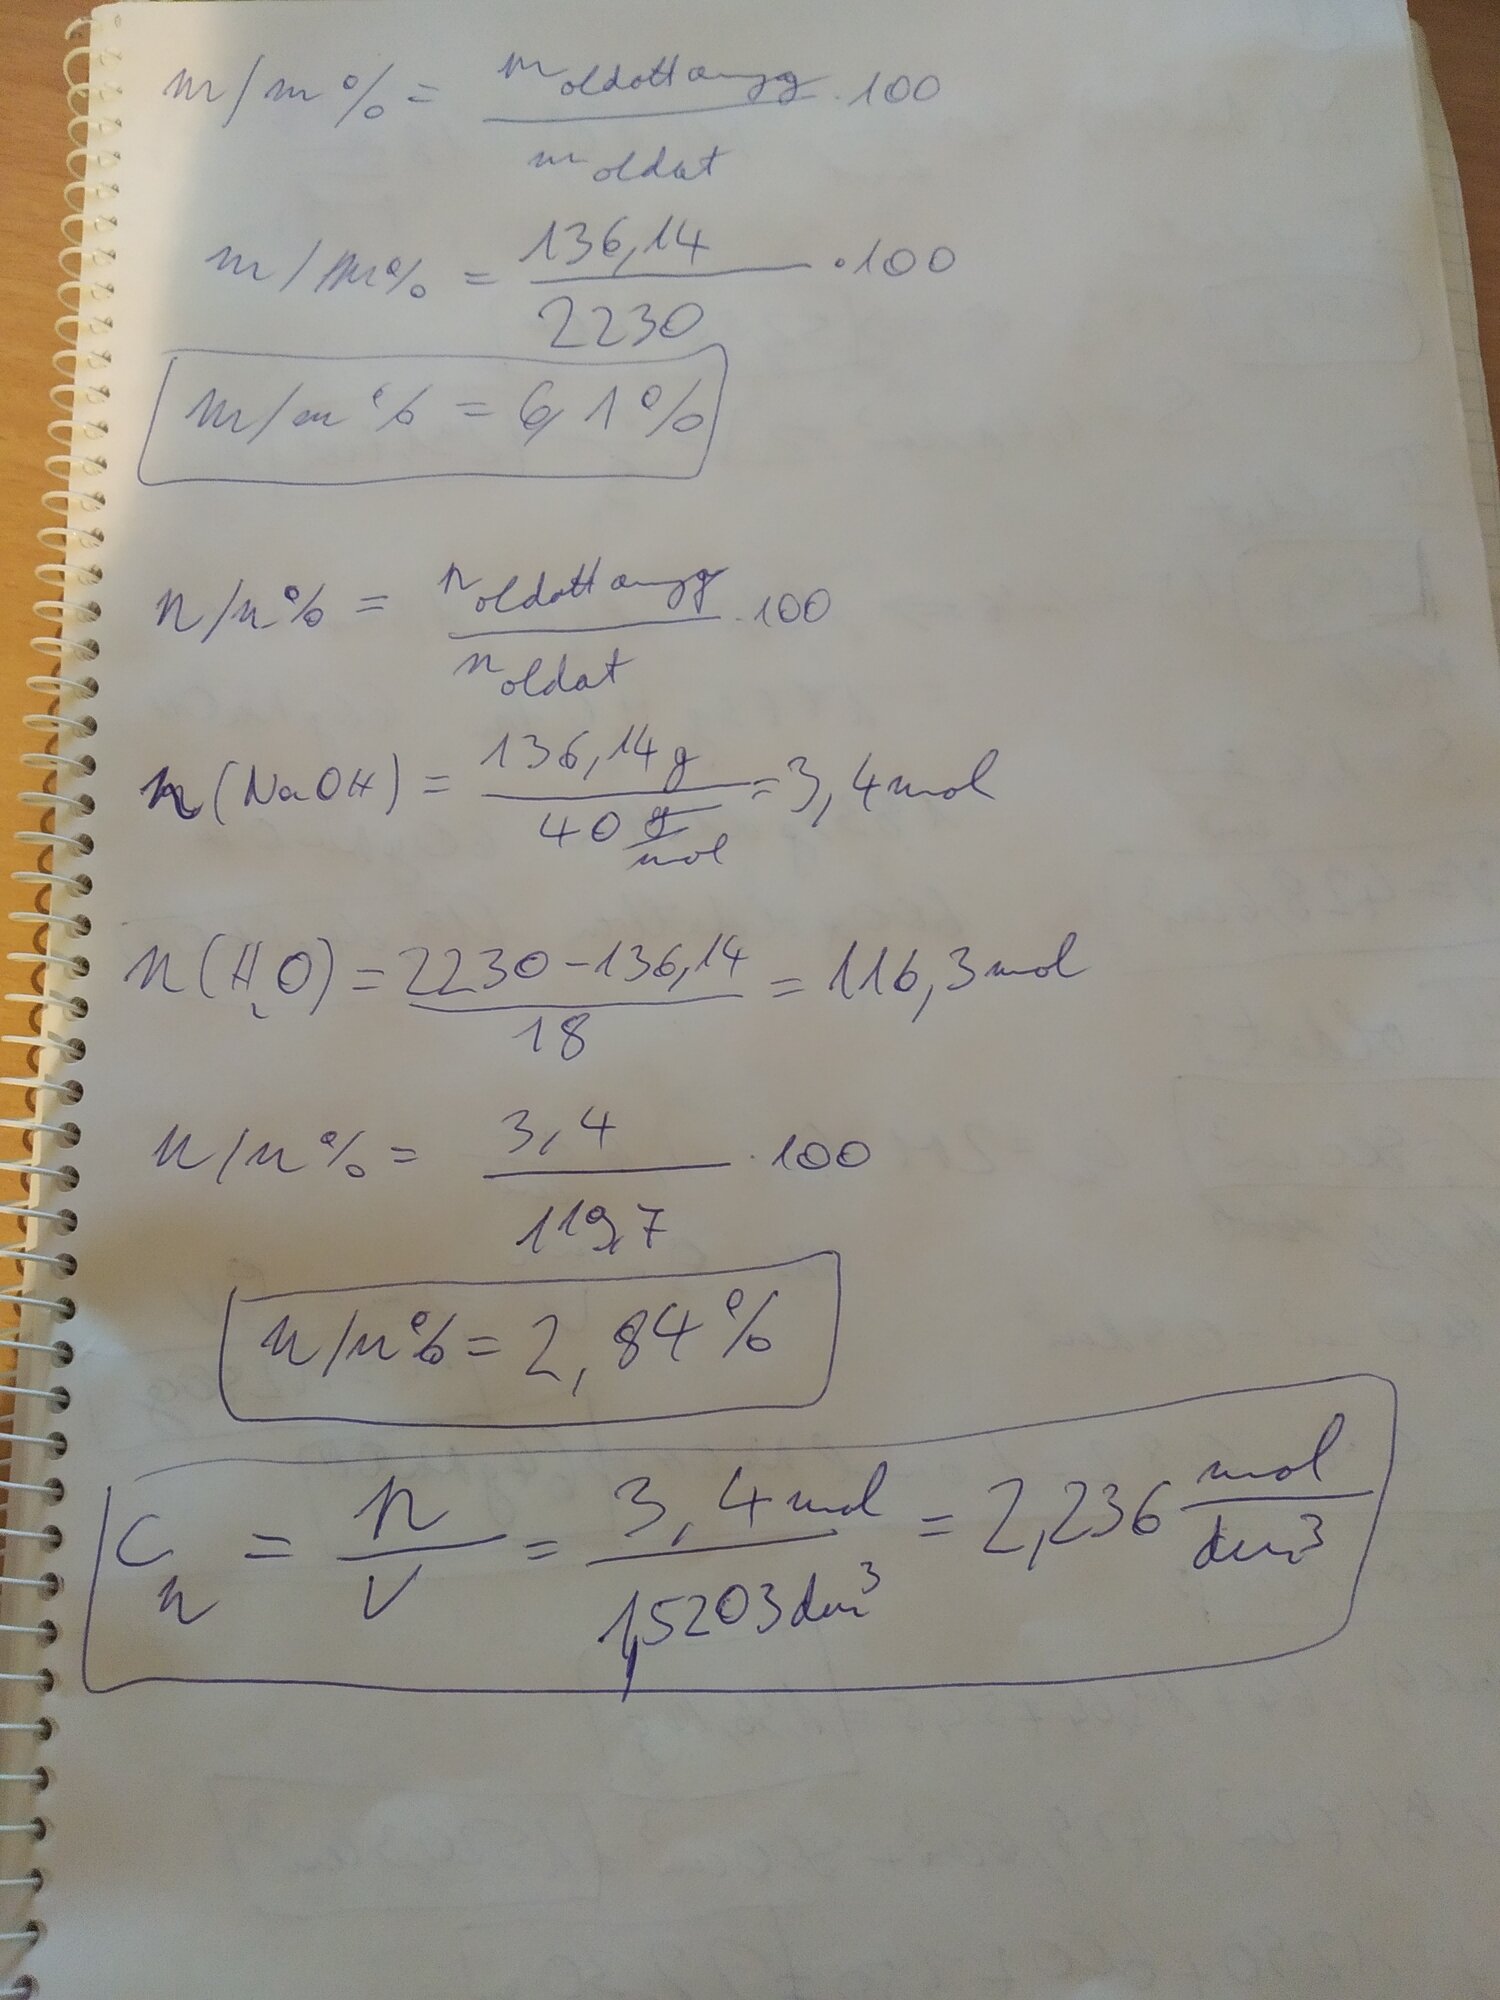 m/m% = m oldott anyag / m oldat · 100
m/m% = 136,14 / 2230 · 100
m/m% = 6,1%
n/n% = n oldott anyag / n oldat · 100
n(NaOH) = 136,14 g / 40 g/mol = 3,4 mol
n(H₂O) = 2230 - 136,14 / 18 = 116,3 mol
n/n% = 3,4 / 119,7 · 100
n/n% = 2,84%
cₙ = n / V = 3,4 mol / 1,5203 dm³ = 2,236 mol / dm³